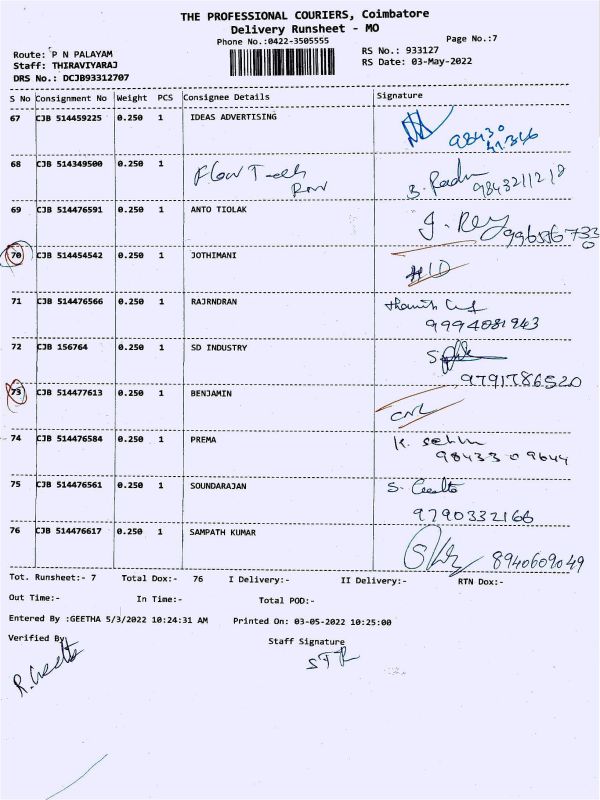 THE PROFESSIONAL COURIERS, Coimbatore
Delivery Runsheet - MO
Phone No.:0422-3505555
Page No.:7
Route: P N PALAYAM
RS No.: 933127
Staff: THIRAVIYARAJ
RS Date: 03-May-2022
DRS No.: DCJB93312707
S No Consignment No Weight PCS Consignee Details Signature
67 CJB 514459225 0.250 1 IDEAS ADVERTISING
68 CJB 514349500 0.250 1 Flow Tech B. Radha 9843211218
69 CJB 514476591 0.250 1 ANTO TIOLAK J. Rey
70 CJB 514454542 0.250 1 JOTHIMANI
71 CJB 514476566 0.250 1 RAJRNDRAN 9994081943
72 CJB 156764 0.250 1 SD INDUSTRY 9791786520
73 CJB 514477613 0.250 1 BENJAMIN CNL
74 CJB 514476584 0.250 1 PREMA 98433 09644
75 CJB 514476561 0.250 1 SOUNDARAJAN S. Geetha 9790332166
76 CJB 514476617 0.250 1 SAMPATH KUMAR 8940609049
Tot. Runsheet:- 7 Total Dox:- 76 I Delivery:- II Delivery:- RTN Dox:-
Out Time:- In Time:- Total POD:-
Entered By :GEETHA 5/3/2022 10:24:31 AM Printed On: 03-05-2022 10:25:00
Verified By Staff Signature
R. Geetha STR